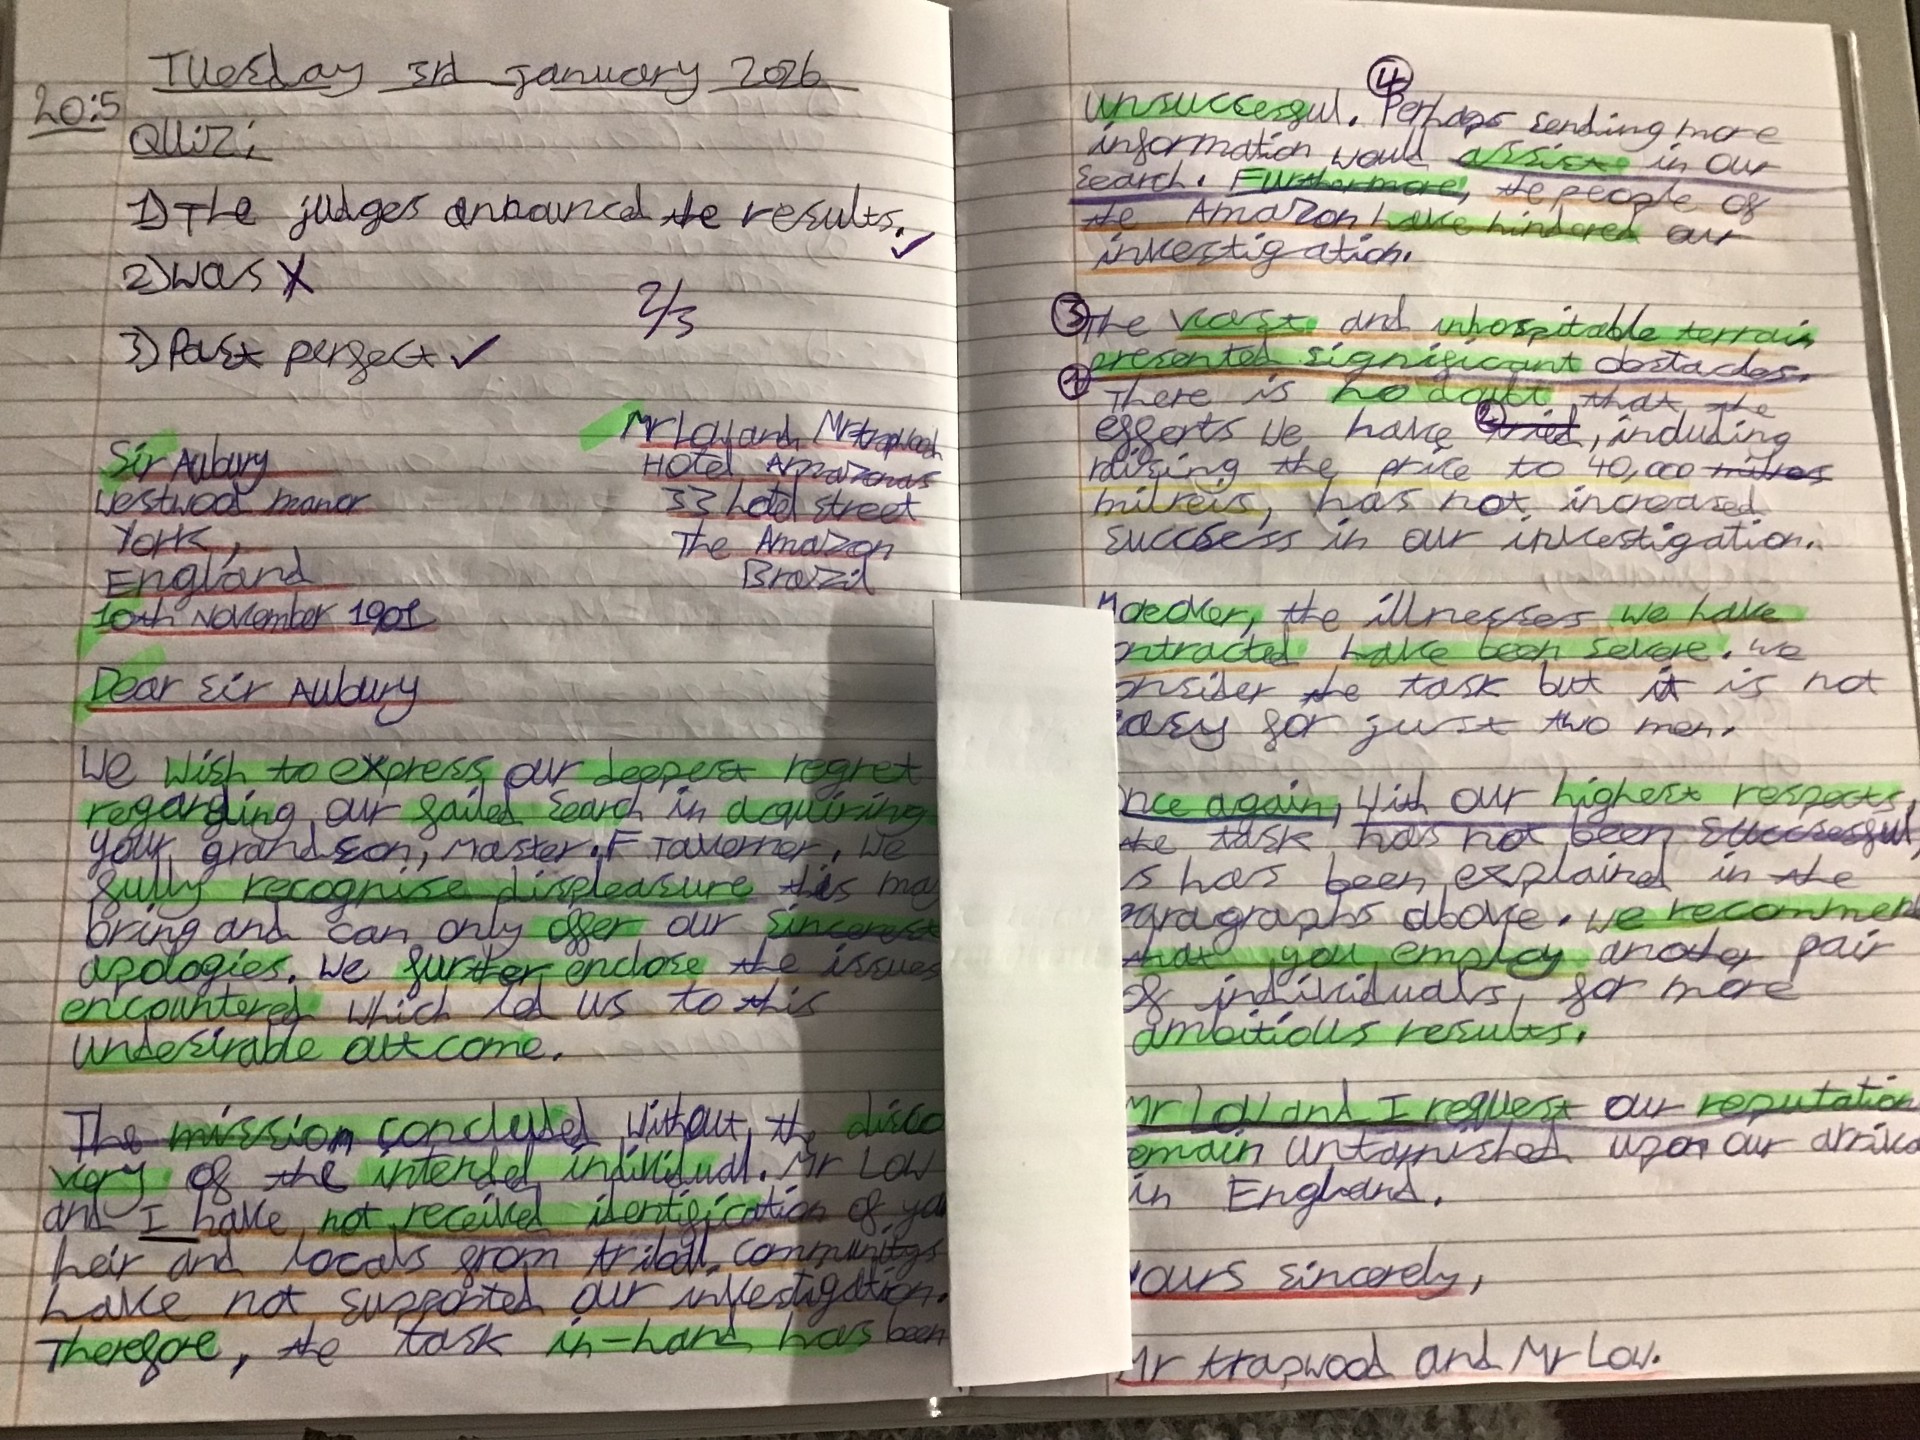 Tuesday 3rd january 2026
20:5
Quiz:
1) The judges announced the results.
2) was
2/3
3) Past perfect
Mr Low and Mr trapwood
Hotel Amazonas
33 hotel street
The Amazon
Brazil
Sir Aubury
Westwood manor
York,
England
10th November 1901
Dear Sir Aubury
We wish to express our deepest regret
regarding our failed search in acquiring
your grandson, Master. F Taverner. We
fully recognise displeasure this may
bring and can only offer our sincerest
apologies. We further enclose the issues
encountered which led us to this
undesirable outcome.
The mission concluded without the disco
very of the intended individual. Mr Low
and I have not received identification of
heir and locals from tribal communitys
have not supported our investigation.
Therefore, the task in-hand has been
4
unsuccessful. Perhaps sending more
information would assist in our
search. Furthermore, the people of
the Amazon have hindered our
investigation.
3 The vast and inhospitable terrain
presented significant obstacles.
1 There is no doubt that the
efforts we have 2 tried, including
raising the price to 40,000 milres
milreis, has not increased
success in our investigation.
the illnesses we have
ntracted have been severe. We
onsider the task but it is not
easy for just two men.
nce again, with our highest respects,
the task has not been successful,
s has been explained in the
aragraphs above. We recommen
that you employ another pair
of individuals, for more
ambitious results.
Mr Low and I request our reputation
emain untarnished upon our arriva
in England.
Yours sincerely,
Mr trapwood and Mr Low.